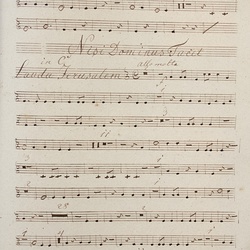 Nisi Dominus Tacet
in C
allo molto
Lauda Jerusalem
11
28
4